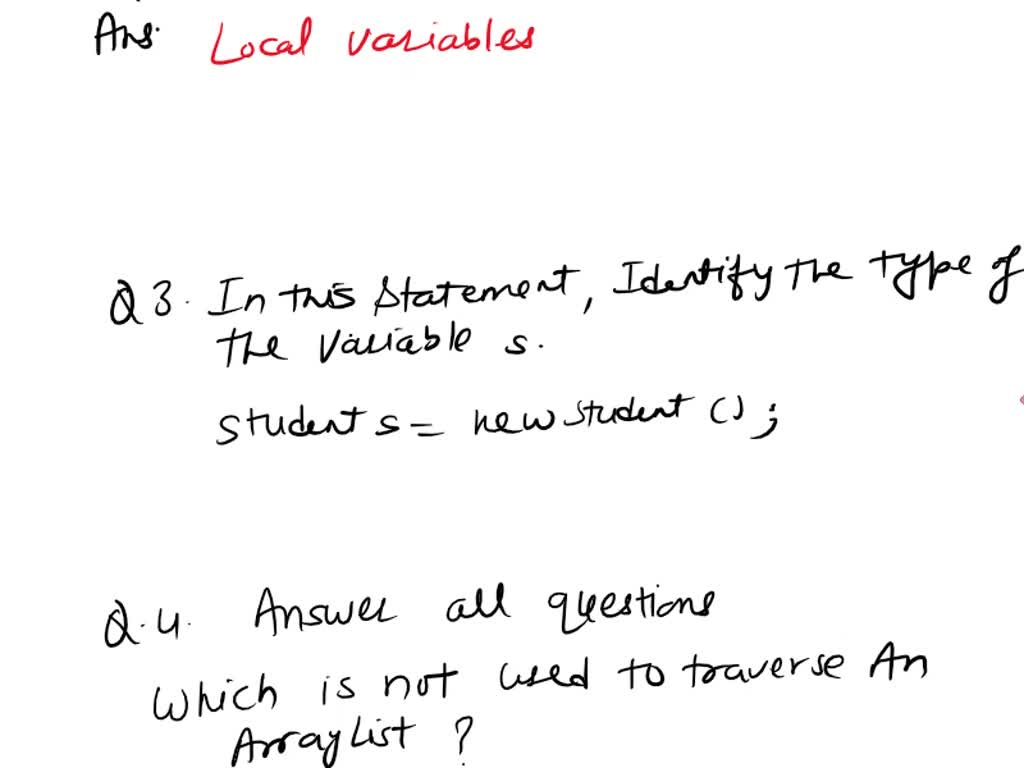 Ans. Local variables
Q3. In this statement, Identify the type of
the variable s.
student s = new student ();
Q.4. Answer all questions
which is not used to traverse An
ArrayList ?